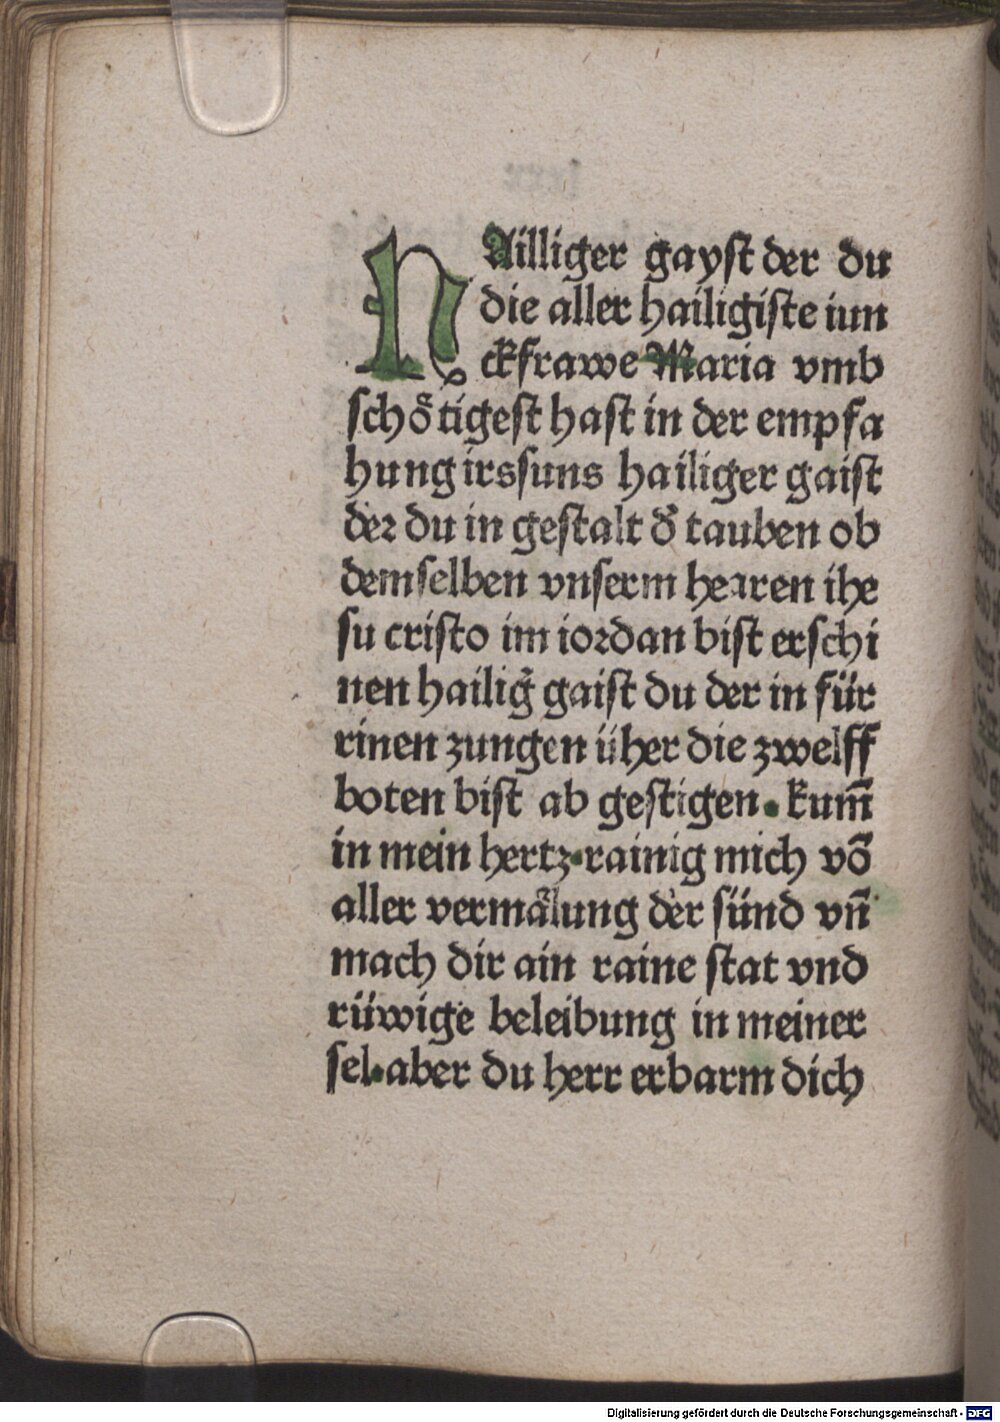 HAilliger gayst der du
die aller hailigiste iun
ckfrawe Maria vmb
schoͤtigest hast in der empfa
hung irs suns hailiger gaist
der du in gestalt d̓ tauben ob
demselben vnserm herren ihe
su cristo im iordan bist erschi
nen hailig̓ gaist du der in für
rinen zungen üher die zwelff
boten bist ab gestigen. kum̄
in mein hertz. rainig mich võ
aller vermaͤlung der sünd vn̄
mach dir ain raine stat vnd
rüwige beleibung in meiner
sel. aber du herr erbarm dich
Digitalisierung gefördert durch die Deutsche Forschungsgemeinschaft - DFG